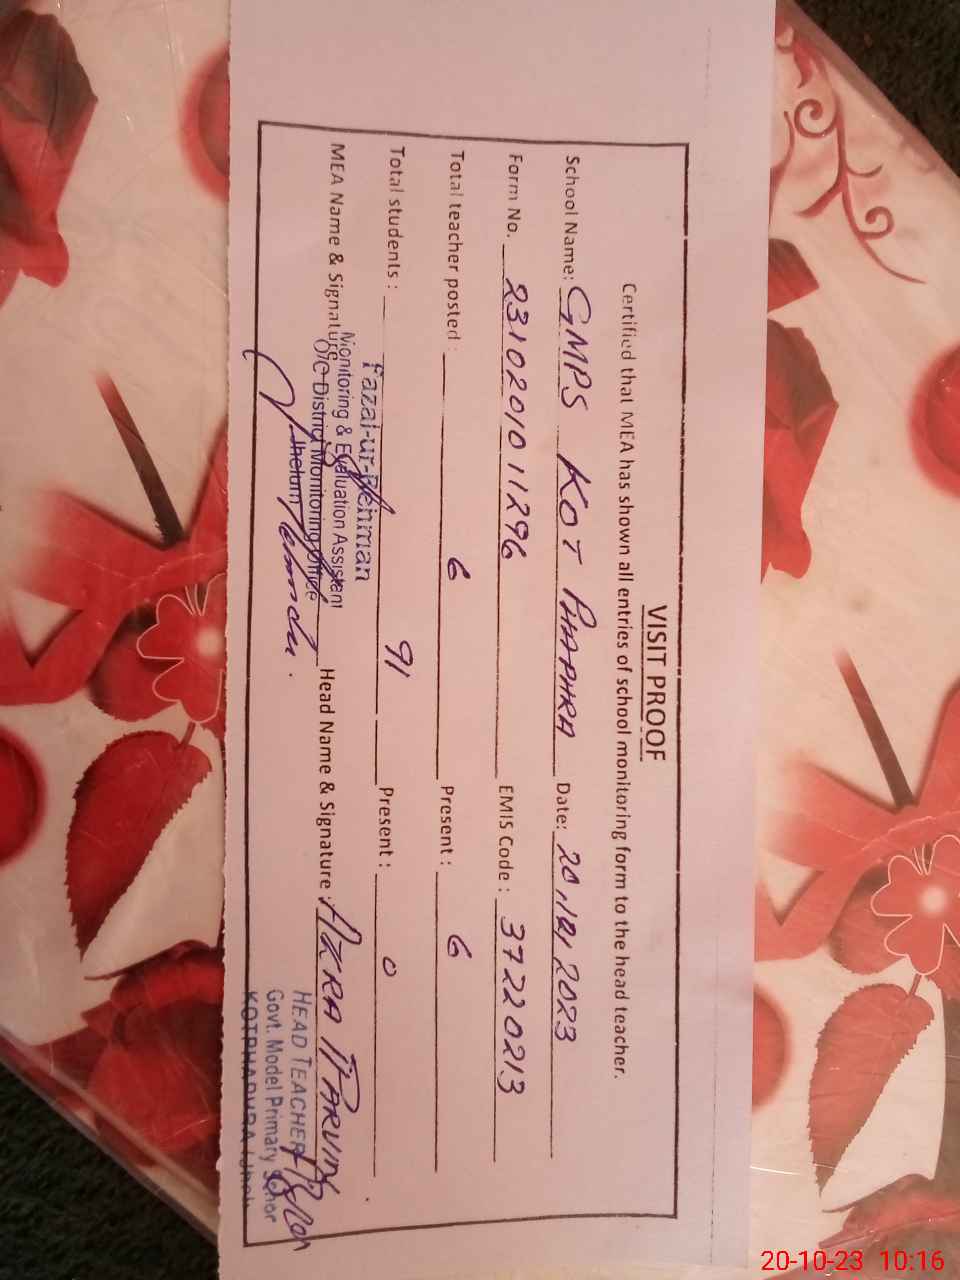 VISIT PROOF
Certified that MEA has shown all entries of school monitoring form to the head teacher.
School Name: GMPS KOT PHAPHRA Date: 20,10,2023
Form No. 2310201011296 EMIS Code: 37220213
Total teacher posted: 6 Present: 6
Total students: 91 Present: 0
MEA Name & Signature Head Name & Signature: AZRA PARVIN
Fazal-ur-Rehman
Monitoring & Evaluation Assistant
O/C District Monitoring Office
Jhelum
HEAD TEACHER
Govt. Model Primary
20-10-23 10:16